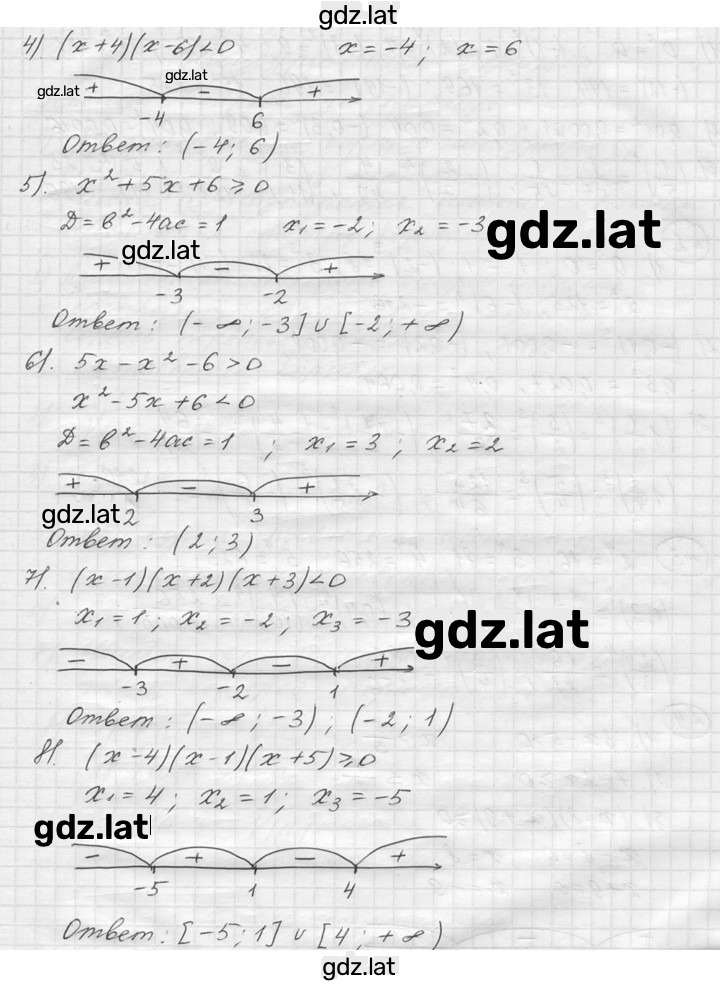 gdz.lat
4) (x+4)(x-6)<0 x=-4; x=6
gdz.lat
gdz.lat + - +
-4 6
Ответ: (-4; 6)
5). x²+5x+6⩾0
D=b²-4ac=1 x₁=-2; x₂=-3
gdz.lat
gdz.lat
+ - +
-3 -2
Ответ: (-∞; -3]∪[-2; +∞)
6). 5x-x²-6>0
x²-5x+6<0
D=b²-4ac=1; x₁=3; x₂=2
+ - +
gdz.lat 2 3
Ответ: (2; 3)
7). (x-1)(x+2)(x+3)<0
x₁=1; x₂=-2; x₃=-3
gdz.lat
- + - +
-3 -2 1
Ответ: (-∞; -3); (-2; 1)
8). (x-4)(x-1)(x+5)⩾0
x₁=4; x₂=1; x₃=-5
gdz.lat
- + - +
-5 1 4
Ответ: [-5; 1]∪[4; +∞)
gdz.lat